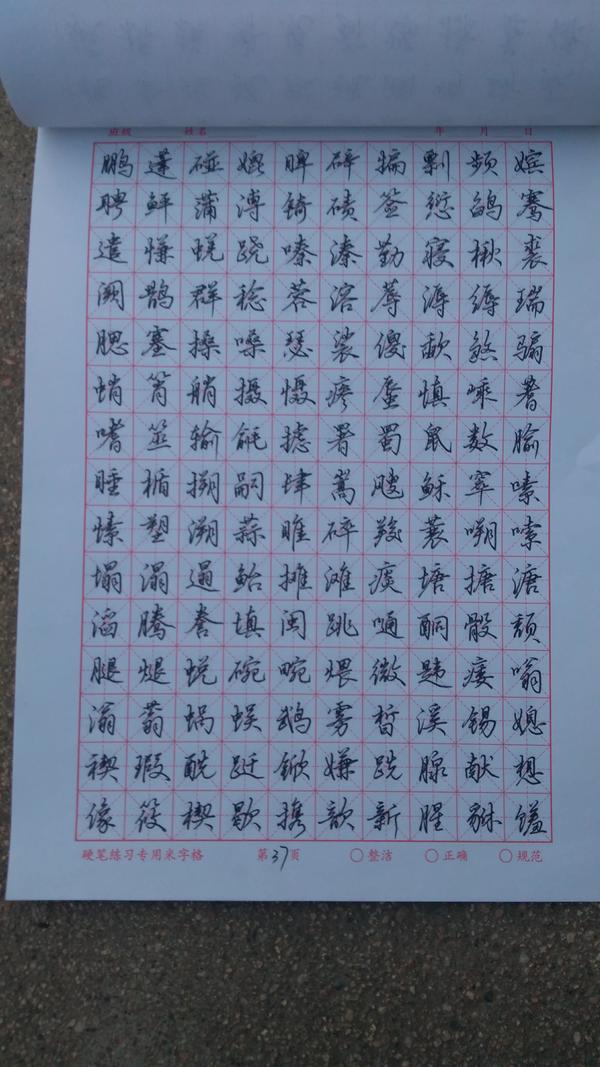 班级 姓名 年 月 日
鹏 蓬 碰 媲 睥 碎 犏 剽 频 嫔
聘 鲆 蒲 溥 锜 碛 签 愆 鹋 骞
遣 慊 蜣 跷 嗪 溱 勤 寝 楸 裘
阙 鹊 群 稔 蓉 溶 蓐 溽 缛 瑞
腮 塞 搡 嗓 瑟 裟 傻 歃 煞 骟
蛸 筲 艄 摄 慑 瘆 蜃 慎 嗜 蓍
嗜 筮 输 毹 摅 署 蜀 鼠 数 腧
睡 楯 搠 嗣 肆 嵩 飕 稣 窣 嗉
愫 塑 溯 蒜 睢 碎 羧 蓑 嗍 嗦
塌 溻 遢 鲐 摊 滩 痰 塘 搪 溏
滔 腾 誊 填 阗 跳 嗵 酮 骰 颓
腿 煺 蜕 碗 畹 煨 微 韪 痿 嗡
滃 蓊 蜗 蜈 鹉 雾 皙 溪 锡 媳
禊 瑕 酰 跹 锨 嫌 跣 腺 献 想
像 筱 楔 歇 携 歆 新 腥 貅 馐
硬笔练习专用米字格 第37页 ○整洁 ○正确 ○规范